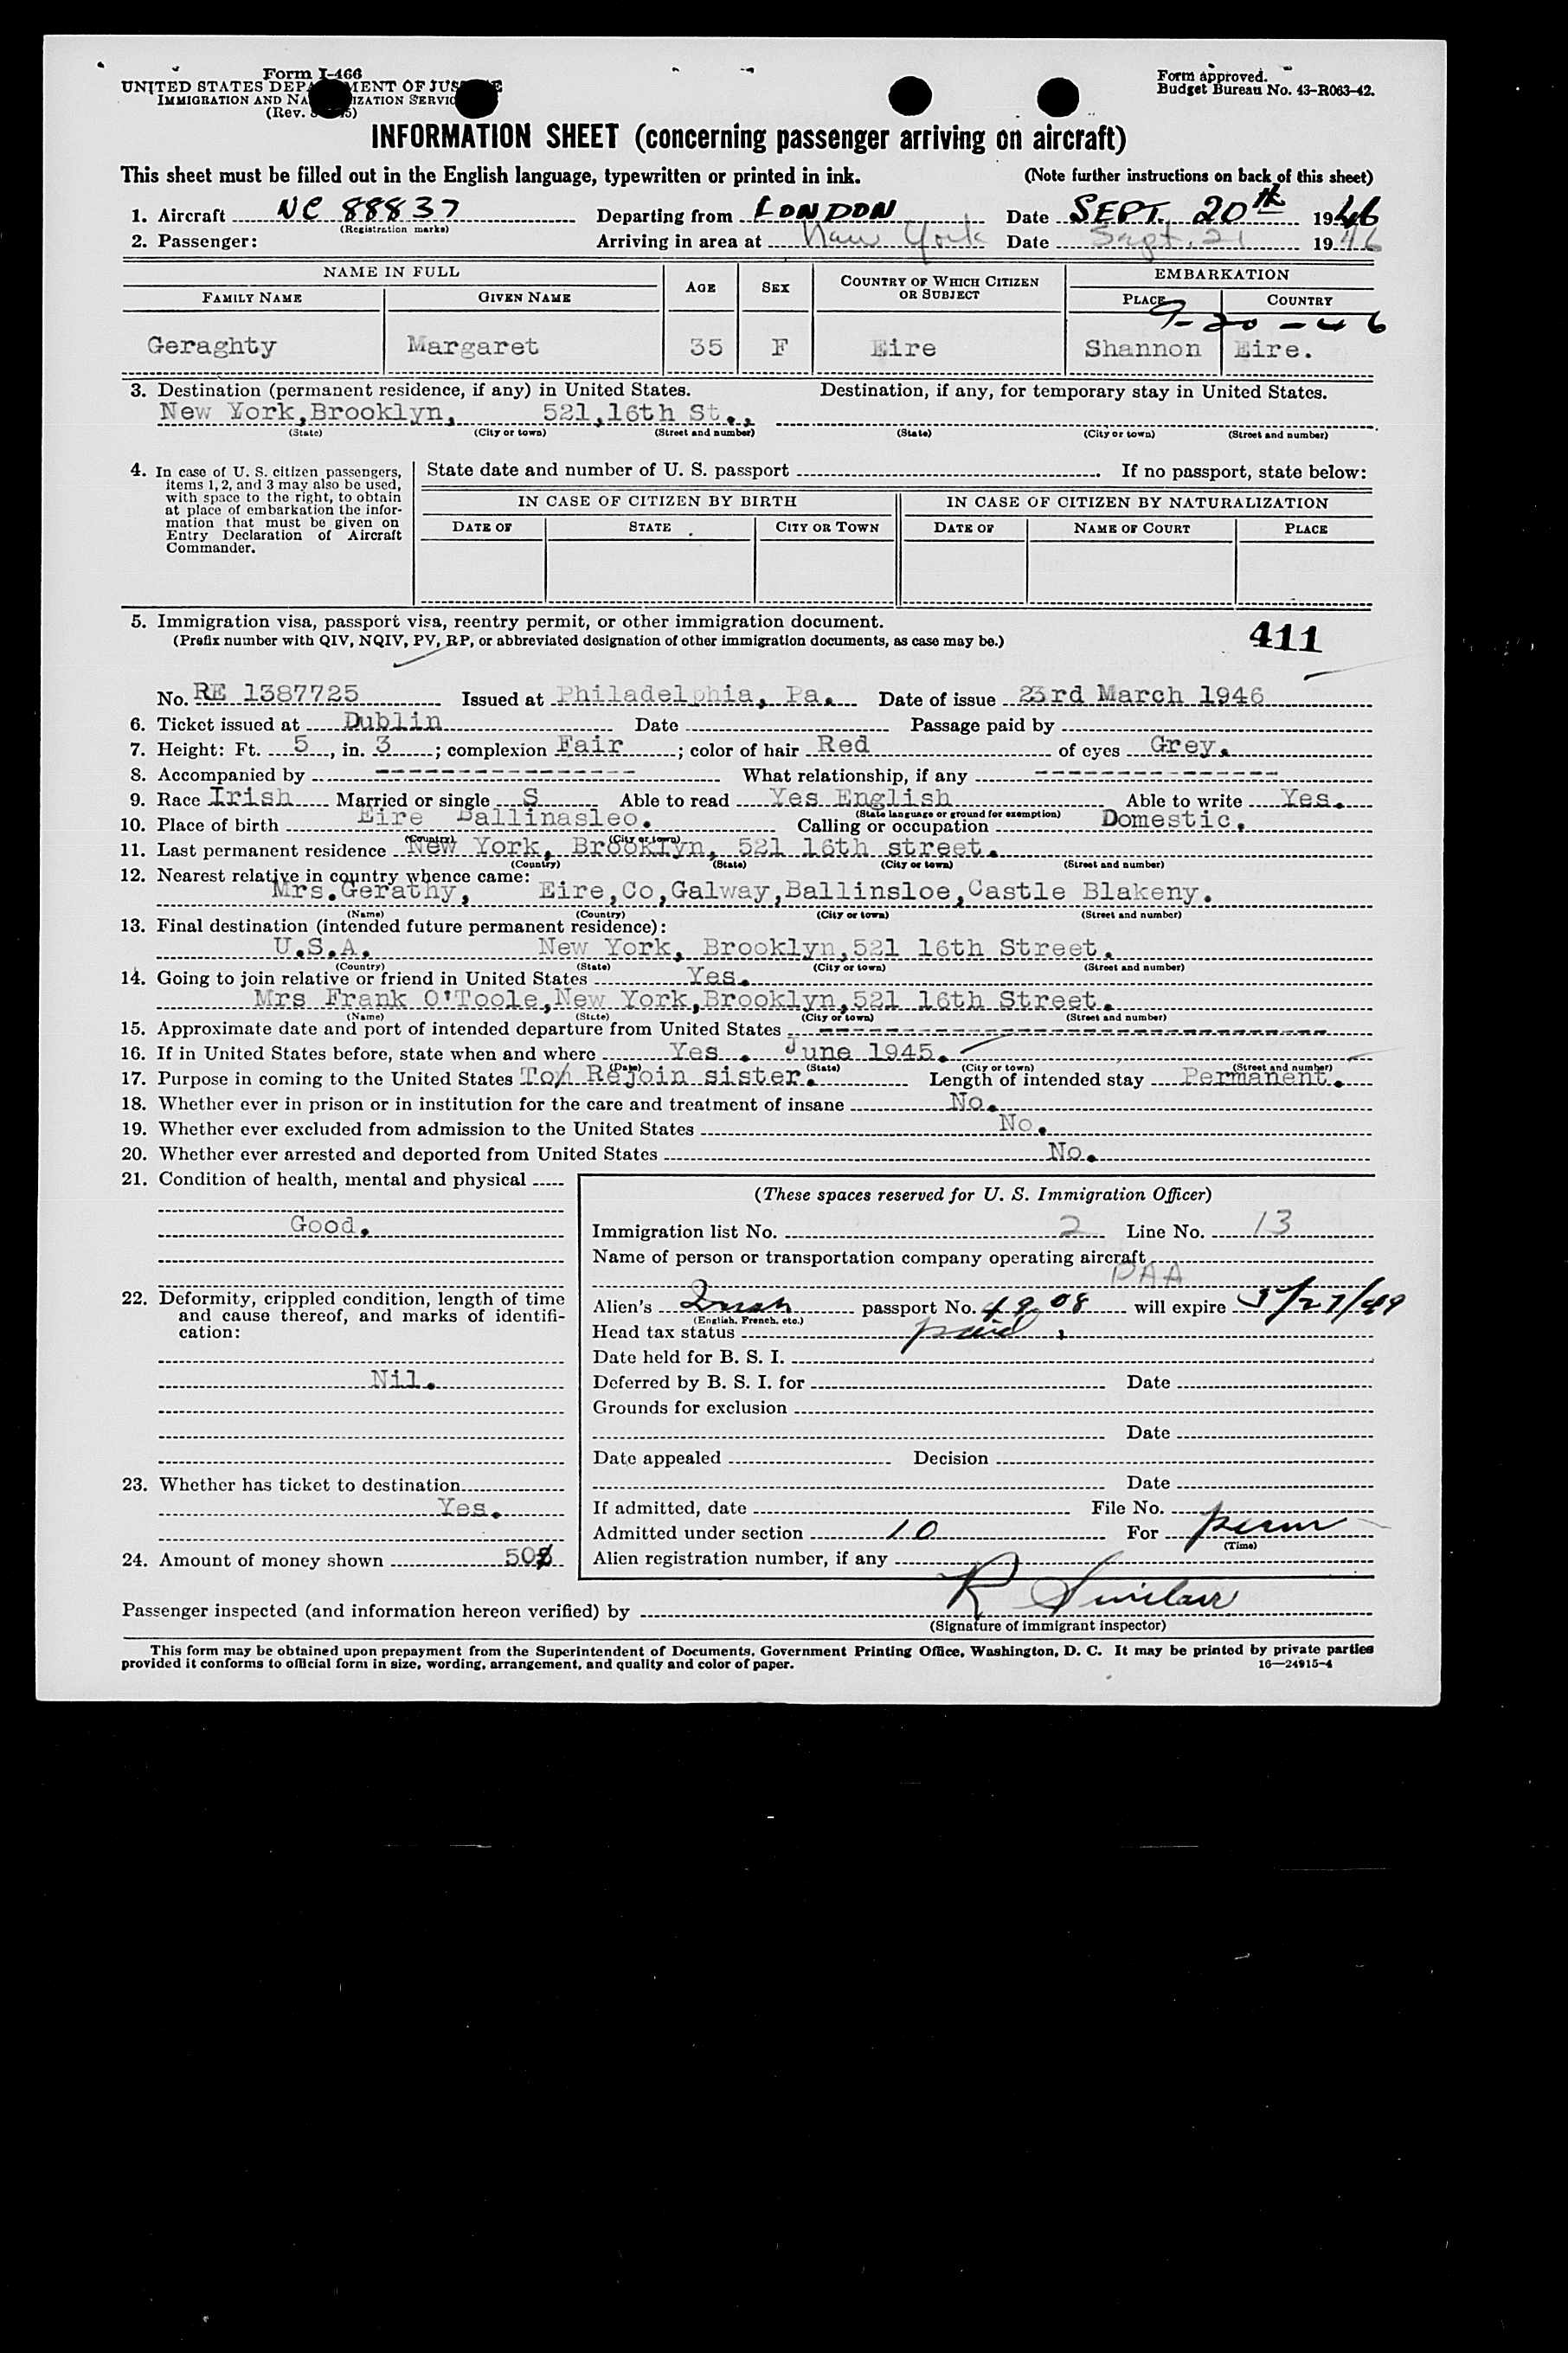 Form I-466
UNITED STATES DEPARTMENT OF JUSTICE
IMMIGRATION AND NATURALIZATION SERVICE
(Rev.
Form approved.
Budget Bureau No. 43-R063-42.
INFORMATION SHEET (concerning passenger arriving on aircraft)
This sheet must be filled out in the English language, typewritten or printed in ink. (Note further instructions on back of this sheet)
1. Aircraft NC 88837 Departing from LONDON Date SEPT. 20th 1946
(Registration marks)
2. Passenger: Arriving in area at New York Date Sept. 21 1946
NAME IN FULL AGE SEX COUNTRY OF WHICH CITIZEN OR SUBJECT EMBARKATION
FAMILY NAME GIVEN NAME PLACE COUNTRY
9-20-46
Geraghty Margaret 35 F Eire Shannon Eire.
3. Destination (permanent residence, if any) in United States. Destination, if any, for temporary stay in United States.
New York,Brooklyn, 521,16th St.,
(State) (City or town) (Street and number) (State) (City or town) (Street and number)
4. In case of U. S. citizen passengers, items 1, 2, and 3 may also be used, with space to the right, to obtain at place of embarkation the information that must be given on Entry Declaration of Aircraft Commander.
State date and number of U. S. passport If no passport, state below:
IN CASE OF CITIZEN BY BIRTH IN CASE OF CITIZEN BY NATURALIZATION
DATE OF STATE CITY OR TOWN DATE OF NAME OF COURT PLACE
5. Immigration visa, passport visa, reentry permit, or other immigration document.
(Prefix number with QIV, NQIV, PV, RP, or abbreviated designation of other immigration documents, as case may be.)
411
No. RE 1387725 Issued at Philadelphia, Pa. Date of issue 23rd March 1946
6. Ticket issued at Dublin Date Passage paid by
7. Height: Ft. 5, in. 3; complexion Fair; color of hair Red of eyes Grey.
8. Accompanied by ---------------- What relationship, if any ---------------
9. Race Irish Married or single S Able to read Yes English Able to write Yes.
(State language or ground for exemption)
10. Place of birth Eire Ballinasleo. Calling or occupation Domestic.
(Country) (City or town)
11. Last permanent residence New York, Brooklyn, 521 16th street.
(Country) (State) (City or town) (Street and number)
12. Nearest relative in country whence came:
Mrs.Gerathy, Eire,Co,Galway,Ballinsloe,Castle Blakeny.
(Name) (Country) (City or town) (Street and number)
13. Final destination (intended future permanent residence):
U.S.A. New York, Brooklyn,521 16th Street.
(Country) (State) (City or town) (Street and number)
14. Going to join relative or friend in United States Yes.
Mrs Frank O'Toole,New York,Brooklyn,521 16th Street.
(Name) (State) (City or town) (Street and number)
15. Approximate date and port of intended departure from United States
16. If in United States before, state when and where Yes . June 1945.
(Date) (State) (City or town) (Street and number)
17. Purpose in coming to the United States To Rejoin sister. Length of intended stay Permanent.
18. Whether ever in prison or in institution for the care and treatment of insane No.
19. Whether ever excluded from admission to the United States No.
20. Whether ever arrested and deported from United States No.
21. Condition of health, mental and physical
Good.
22. Deformity, crippled condition, length of time and cause thereof, and marks of identification:
Nil.
23. Whether has ticket to destination
Yes.
24. Amount of money shown 50$
(These spaces reserved for U. S. Immigration Officer)
Immigration list No. 2 Line No. 13
Name of person or transportation company operating aircraft
PAA
Alien's Irish passport No. 4908 will expire 5/27/49
(English, French, etc.)
Head tax status paid
Date held for B. S. I.
Deferred by B. S. I. for Date
Grounds for exclusion
Date
Date appealed Decision
Date
If admitted, date File No.
Admitted under section 10 For perm
(Time)
Alien registration number, if any
Passenger inspected (and information hereon verified) by R Sinclair
(Signature of immigrant inspector)
This form may be obtained upon prepayment from the Superintendent of Documents, Government Printing Office, Washington, D. C. It may be printed by private parties
provided it conforms to official form in size, wording, arrangement, and quality and color of paper. 16—24915-4